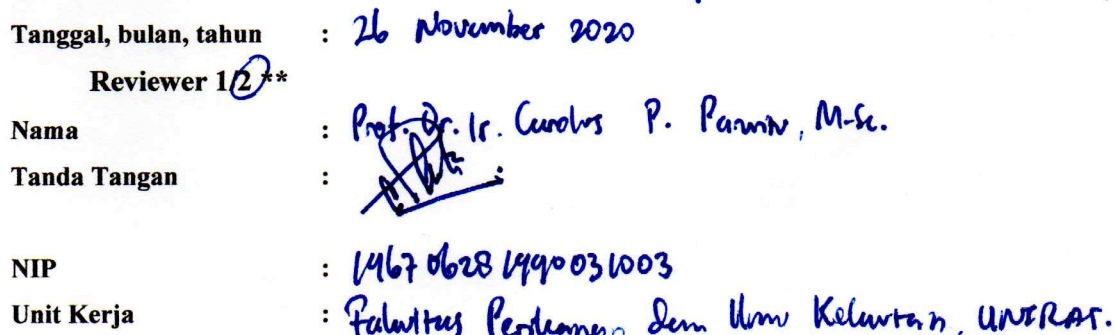 Tanggal, bulan, tahun : 26 November 2020
Reviewer 1/2 **
Nama : Prof. Dr. Ir. Carolus P. Paruntu, M.Sc.
Tanda Tangan :
NIP : 19670628 199003 1003
Unit Kerja : Fakultas Perikanan dan Ilmu Kelautan, UNSRAT.